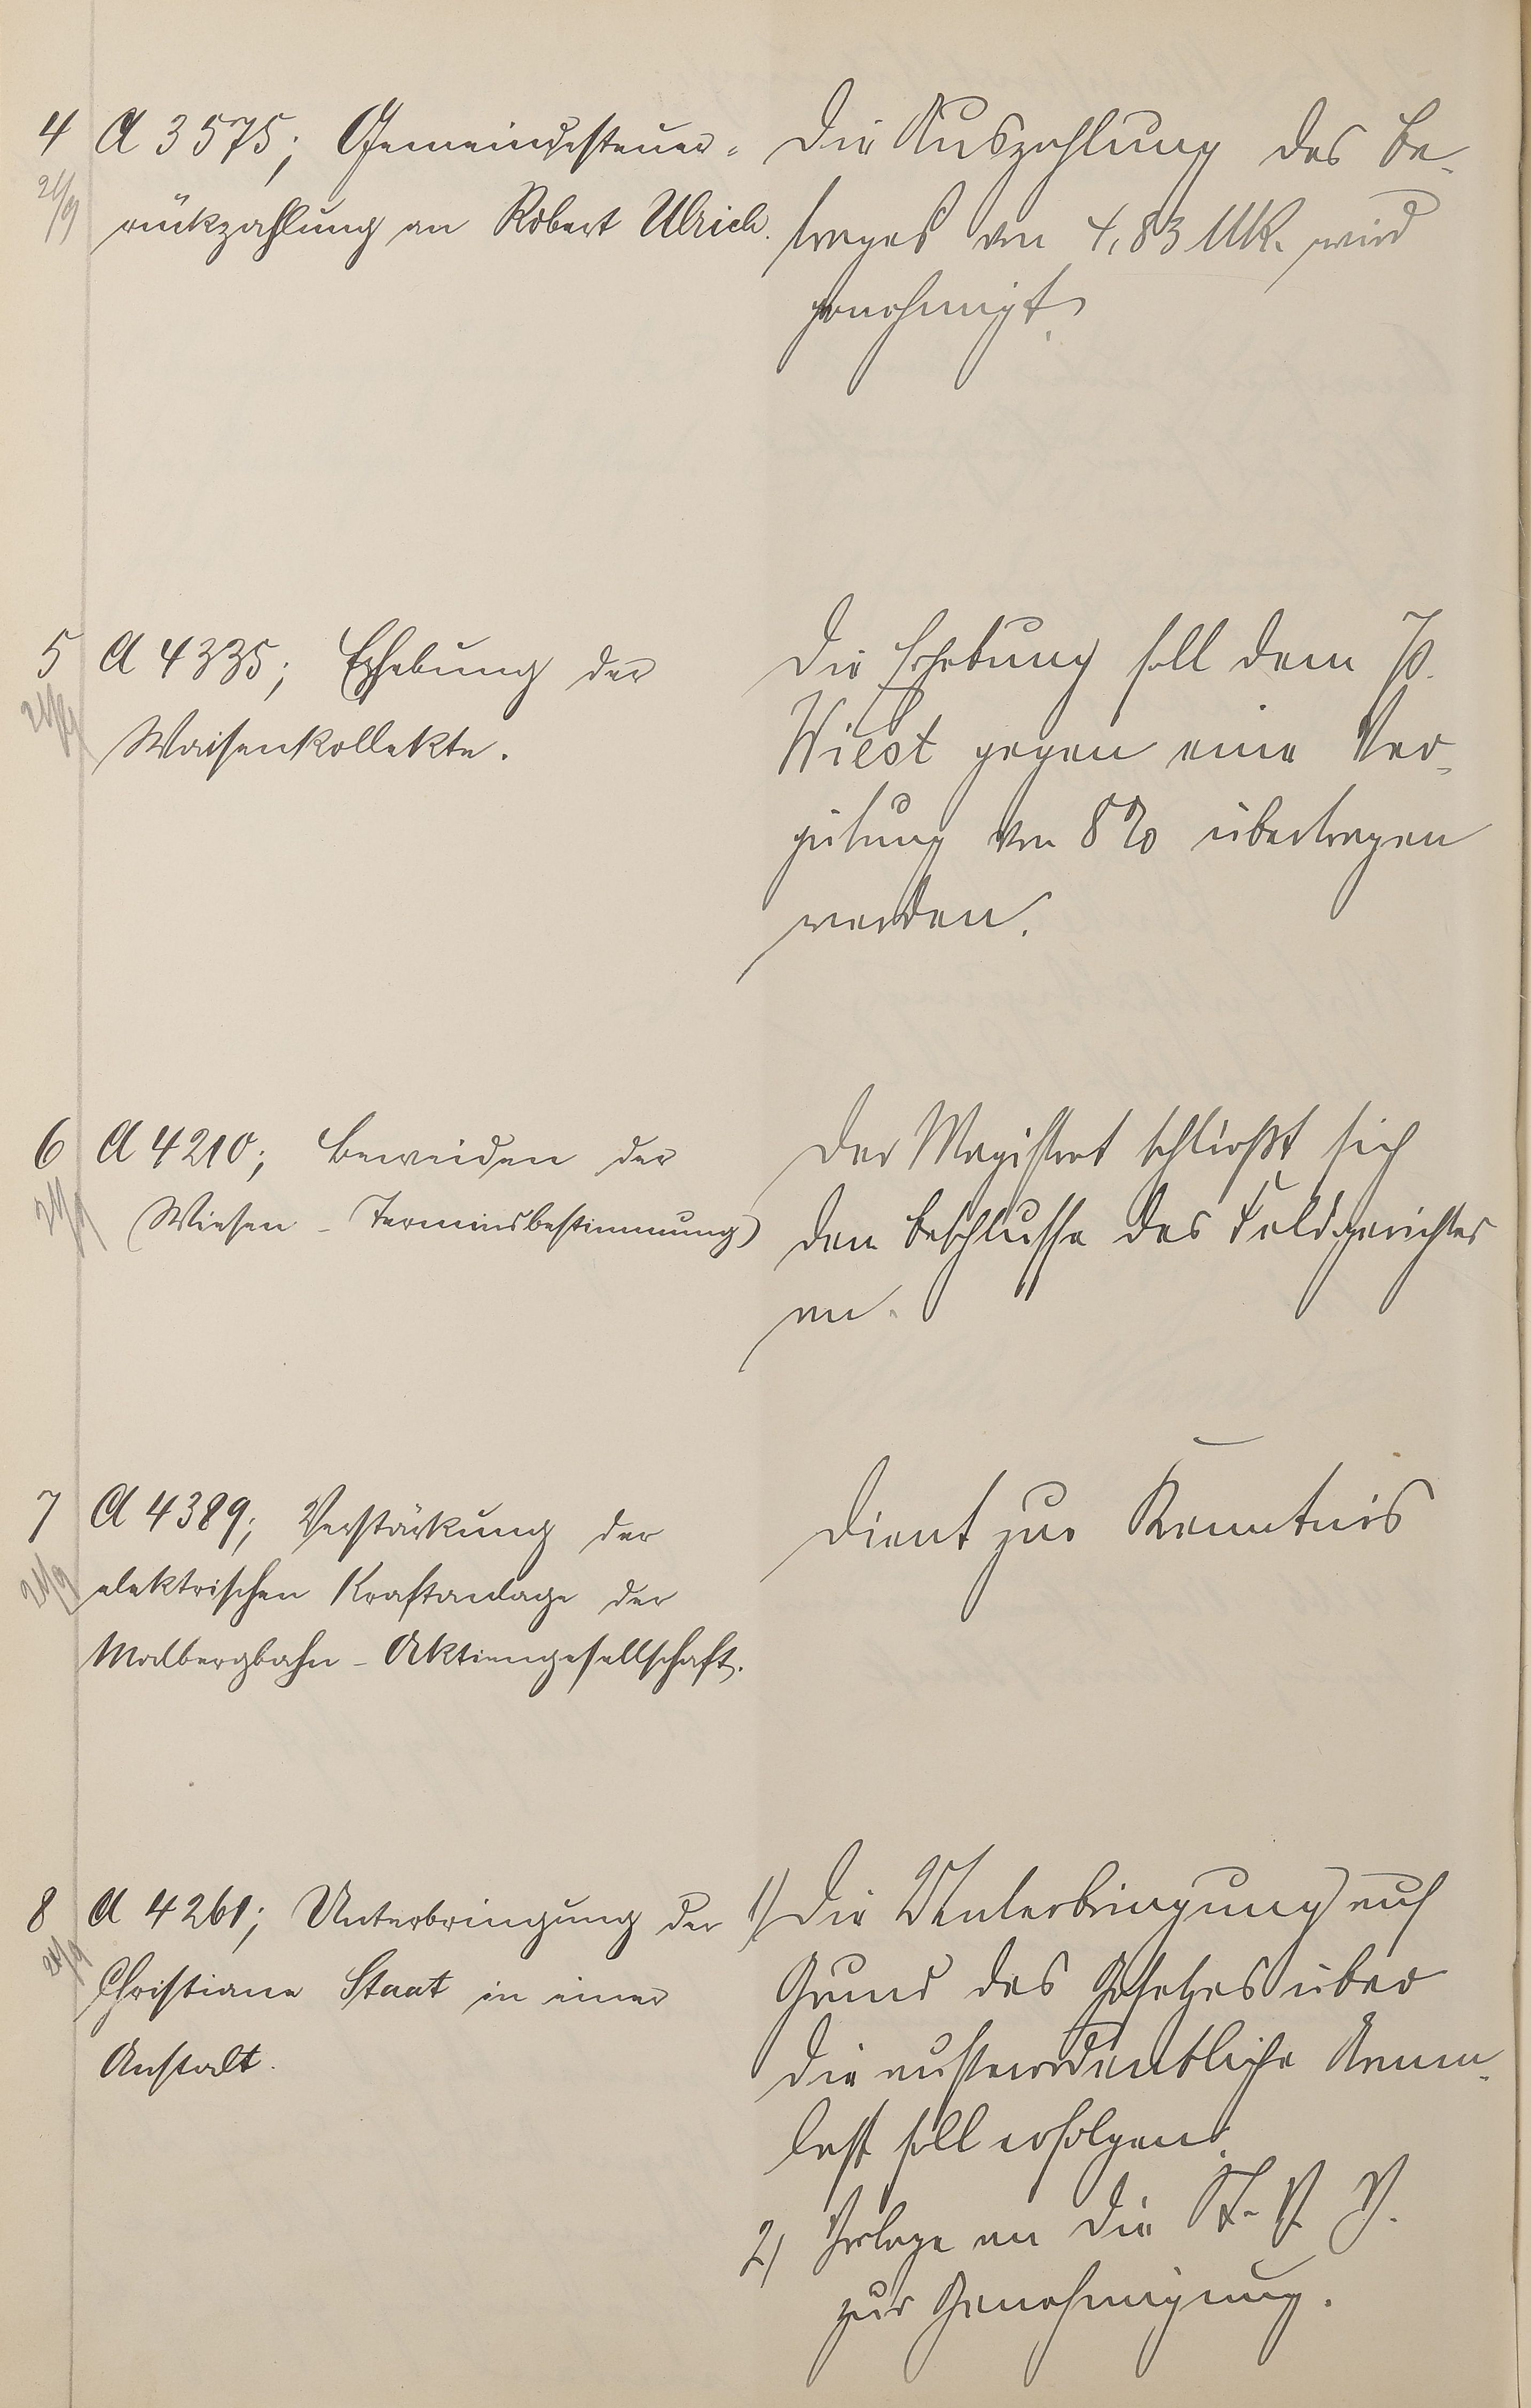 4 A 3575; Gemeindesteuer-
21/9 rückzahlung an Robert Ulrich.
Die Auszahlung des Be-
trages von 4,83 Mk. wird
genehmigt.
5 A 4335; Erhebung der
21/9 Waisenkollekte.
Die Erhebung soll dem P.
Wiest gegen eine Ver-
gütung von 8% übertragen
werden.
6 A 4210; Beweiden der
21/9 Wiesen - Terminsbestimmung
Der Magistrat schließt sich
dem Beschlusse des Feldgerichtes
an.
7 A 4389; Verstärkung der
21/9 elektrischen Kraftanlage der
Malbergbahn-Aktiengesellschaft.
Dient zur Kenntnis
8 A 4261; Unterbringung der
21/9 Christiane Staat in einer
Anstalt.
1) Die Unterbringung auf
Grund des Gesetzes über
die außerordentliche Armen-
last soll erfolgen.
2) Vorlage an die St. V. V.
zur Genehmigung.